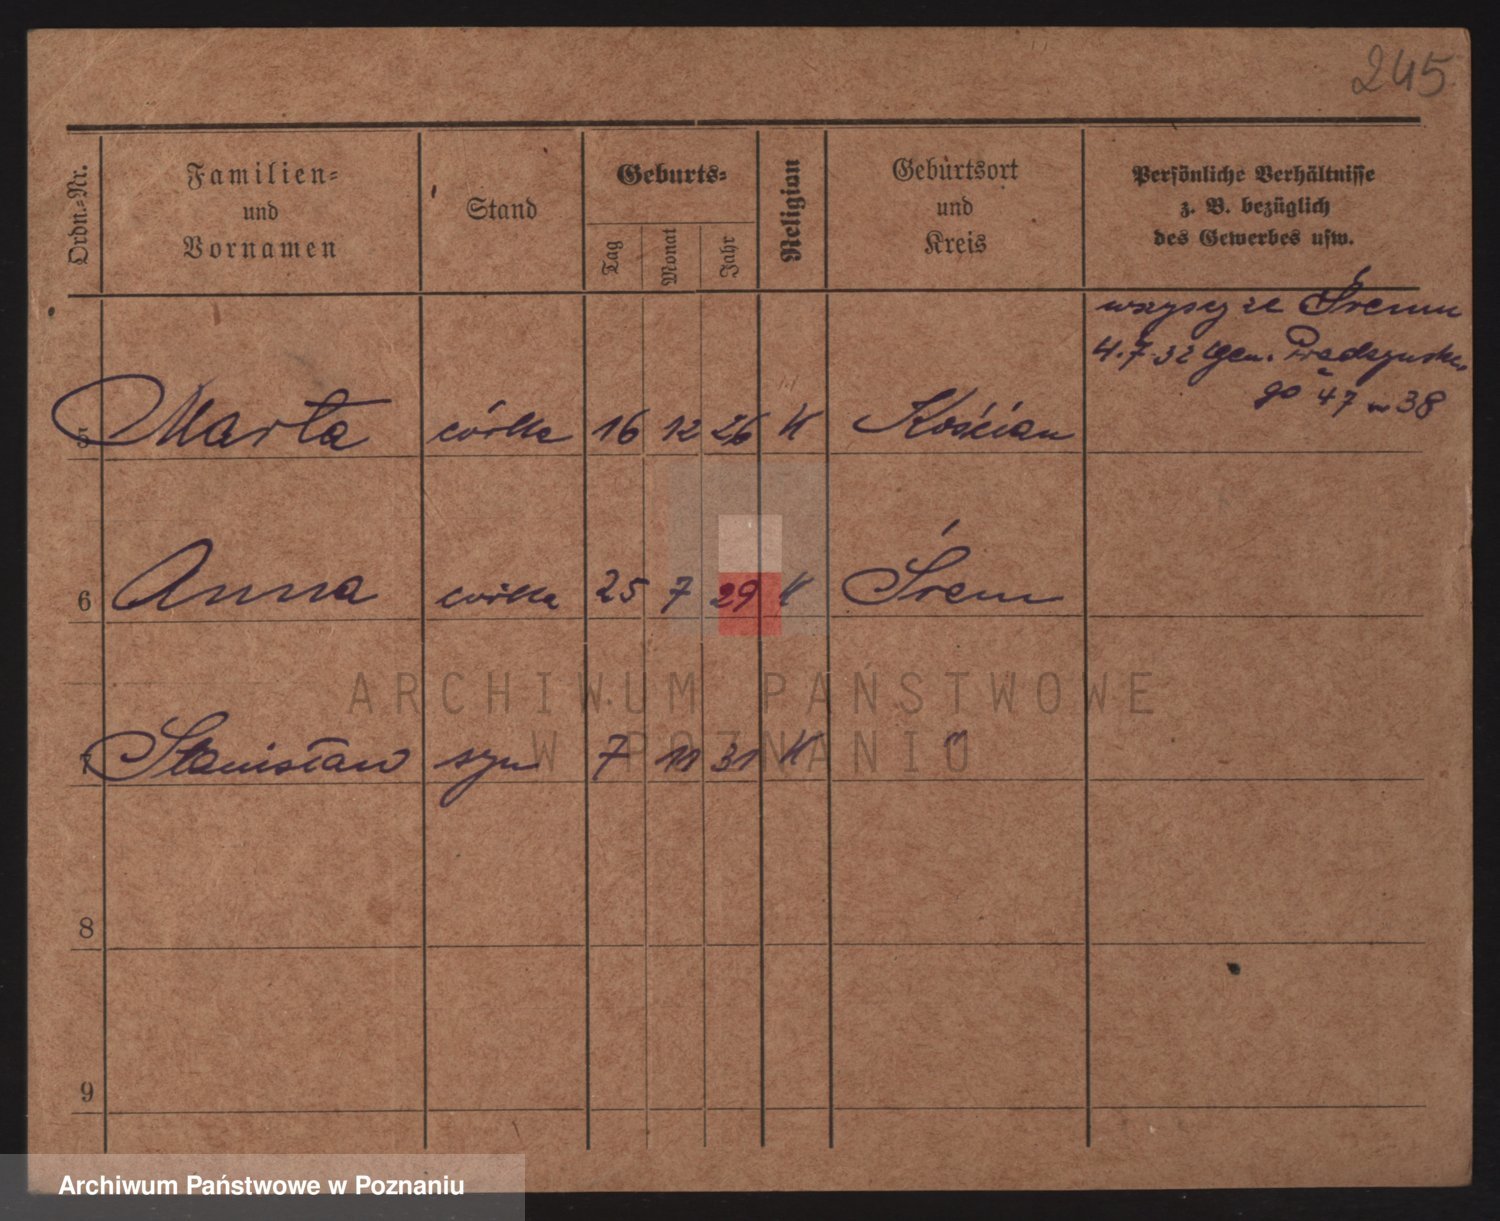 245
Ordn.-Nr.
Familien-
und
Vornamen
Stand
Geburts-
Tag
Monat
Jahr
Religian
Geburtsort
und
Kreis
Persönliche Verhältnisse
z. B. bezüglich
des Gewerbes usw.
wszyscy ze Śremu
4.7.32 Gen. Prądzyńskie
go 47 m 38
5 Marta córka 16 12 26 K Kościan
6 Anna córka 25 7 29 K Śrem
7 Stanisław syn 7 11 31 K "
8
9
ARCHIWUM PAŃSTWOWE
W POZNANIU
Archiwum Państwowe w Poznaniu